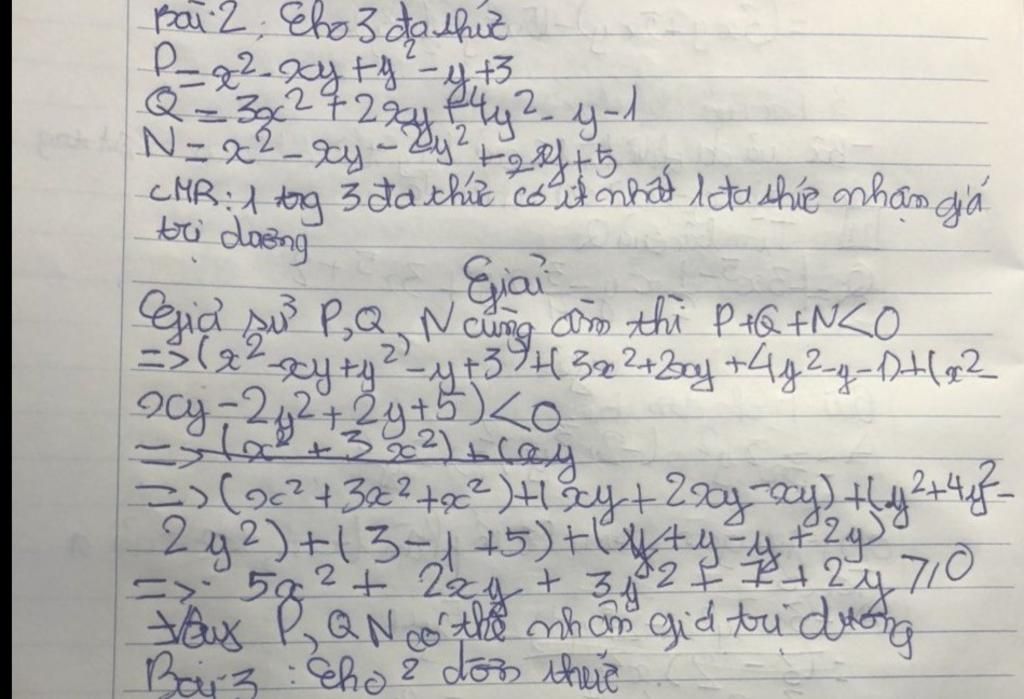 Bài 2: Cho 3 đa thức
P = x² - xy + y² - y + 3
Q = 3x² + 2xy + 4y² - y - 1
N = x² - xy - 2y² + 2y + 5
CMR: 1 tg 3 đa thức có ít nhất 1 đa thức nhận giá
trị dương
Giải
Giả sử P, Q, N cùng âm thì P+Q+N<0
=> (x² - xy + y² - y + 3) + (3x² + 2xy + 4y² - y - 1) + (x² -
xy - 2y² + 2y + 5) < 0
=> (x² + 3x²) + (xy
=> (x² + 3x² + x²) + (xy + 2xy - xy) + (y² + 4y² -
2y²) + (3 - 1 + 5) + (y + y - y + 2y)
=> 5x² + 2xy + 3y² + 7 + 2y ≥ 0
Vậy P, Q N có thể nhận giá trị dương
Bài 3: Cho 2 đơn thức